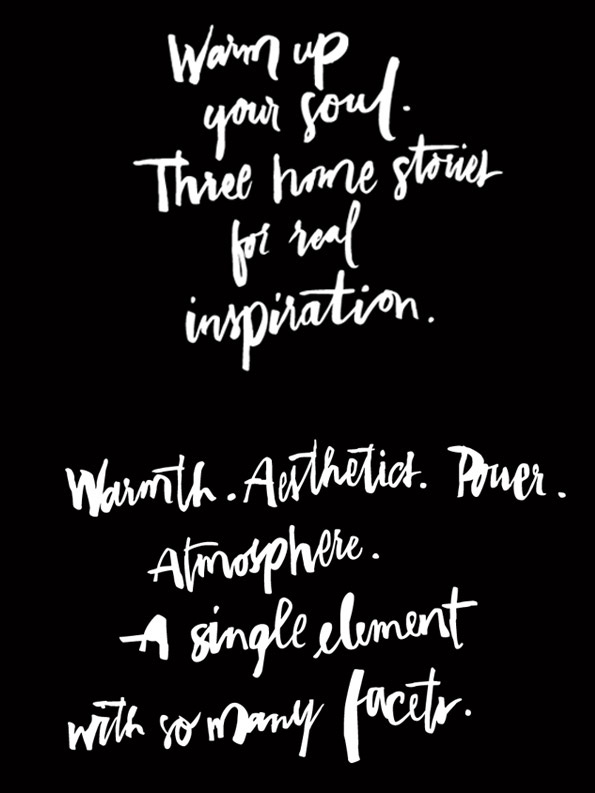 Warm up
your soul.
Three home stories
for real
inspiration.
Warmth. Aesthetics. Power.
Atmosphere.
A single element
with so many facets.